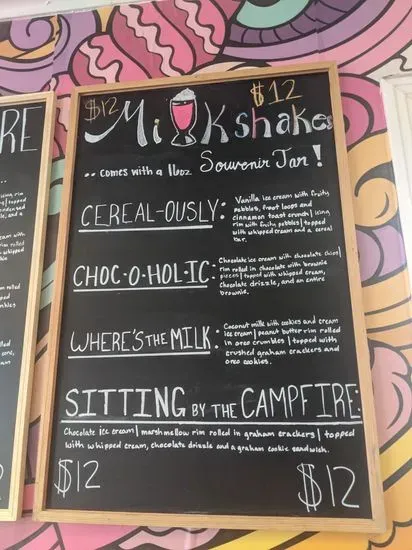 RE
$12 Milkshakes $12
.. comes with a 16oz Souvenir Jar!
CEREAL-OUSLY:
Vanilla ice cream with fruity
pebbles, froot loops and
cinnamon toast crunch | icing
rim with fruity pebbles | topped
with whipped cream and a cereal
bar.
CHOC·O·HOL·IC:
Chocolate ice cream with chocolate chips |
rim rolled in chocolate with brownie
pieces | topped with whipped cream,
chocolate drizzle, and an entire
brownie.
WHERE'S THE MILK:
Coconut milk with cookies and cream
ice cream | peanut butter rim rolled
in oreo crumbles | topped with
crushed graham crackers and
oreo cookies.
SITTING BY THE CAMPFIRE:
Chocolate ice cream | marshmellow rim rolled in graham crackers | topped
with whipped cream, chocolate drizzle and a graham cookie sandwich.
$12 $12